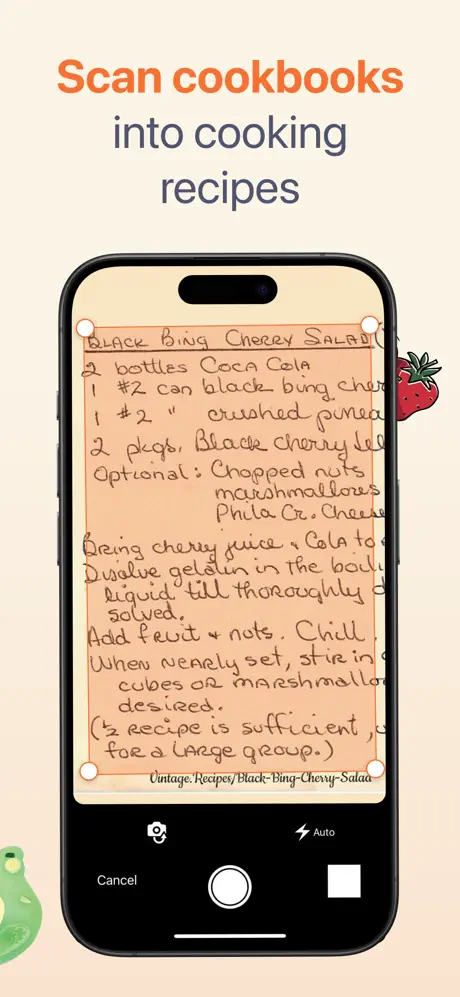 Scan cookbooks
into cooking
recipes
BLACK BING CHERRY SALAD (
2 bottles COCA COLA
1 #2 can black bing cher
1 #2 " crushed pinea
2 pkgs. Black cherry Jel
Optional: Chopped nuts
marshmallows
Phila Cr. Cheese
Bring cherry juice & Cola to
Disolve gelatin in the boili
liquid till thoroughly d
solved.
Add fruit & nuts. Chill.
When nearly set, stir in
cubes or marshmallo
desired.
(½ recipe is sufficient, u
for a large group.)
Vintage.Recipes/Black-Bing-Cherry-Salad
Auto
Cancel